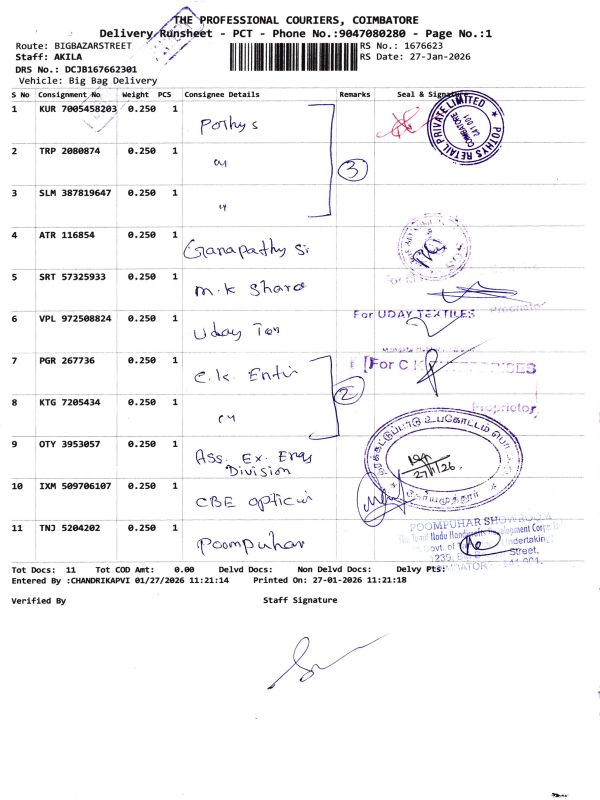 THE PROFESSIONAL COURIERS, COIMBATORE
Delivery Runsheet - PCT - Phone No.:9047080280 - Page No.:1
Route: BIGBAZARSTREET
RS No.: 1676623
Staff: AKILA
RS Date: 27-Jan-2026
DRS No.: DCJB167662301
Vehicle: Big Bag Delivery
S No Consignment No Weight PCS Consignee Details Remarks Seal &
1 KUR 7005458203 0.250 1 Pothys
POTHYS RETAIL PRIVATE LIMITED
COIMBATORE
641 001
2 TRP 2080874 0.250 1 "
3
3 SLM 387819647 0.250 1 "
4 ATR 116854 0.250 1 Ganapathy Si
5 SRT 57325933 0.250 1 M.K Shara
Proprietor
6 VPL 972508824 0.250 1 Uday Tex
For UDAY TEXTILES
7 PGR 267736 0.250 1 C.K. Enti
For C K ENTERPRISES
2
8 KTG 7205434 0.250 1 "
Proprietor
9 OTY 3953057 0.250 1 Ass. Ex. Eng
Division
27/1/26.
10 IXM 509706107 0.250 1 CBE optician
11 TNJ 5204202 0.250 1 Poompuhar
POOMPUHAR SHOWROOM
Tamil Nadu Handicrafts Development Corpn
Govt. of Undertaking
Street,
Tot Docs: 11 Tot COD Amt: 0.00 Delvd Docs: Non Delvd Docs: Delvy Pts:
Entered By :CHANDRIKAPVI 01/27/2026 11:21:14 Printed On: 27-01-2026 11:21:18
Verified By Staff Signature